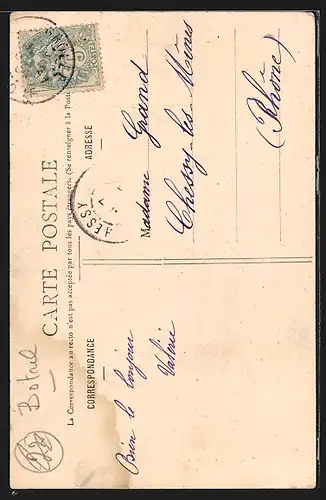 CARTE POSTALE
La Correspondance au recto n'est pas acceptée par tous les pays étrangers. (Se renseigner à la Poste)
CORRESPONDANCE
ADRESSE
Bien le bonjour
Valérie
Madame Grand
Chessy-les-Mines
(Rhône)
HESSY
POSTES